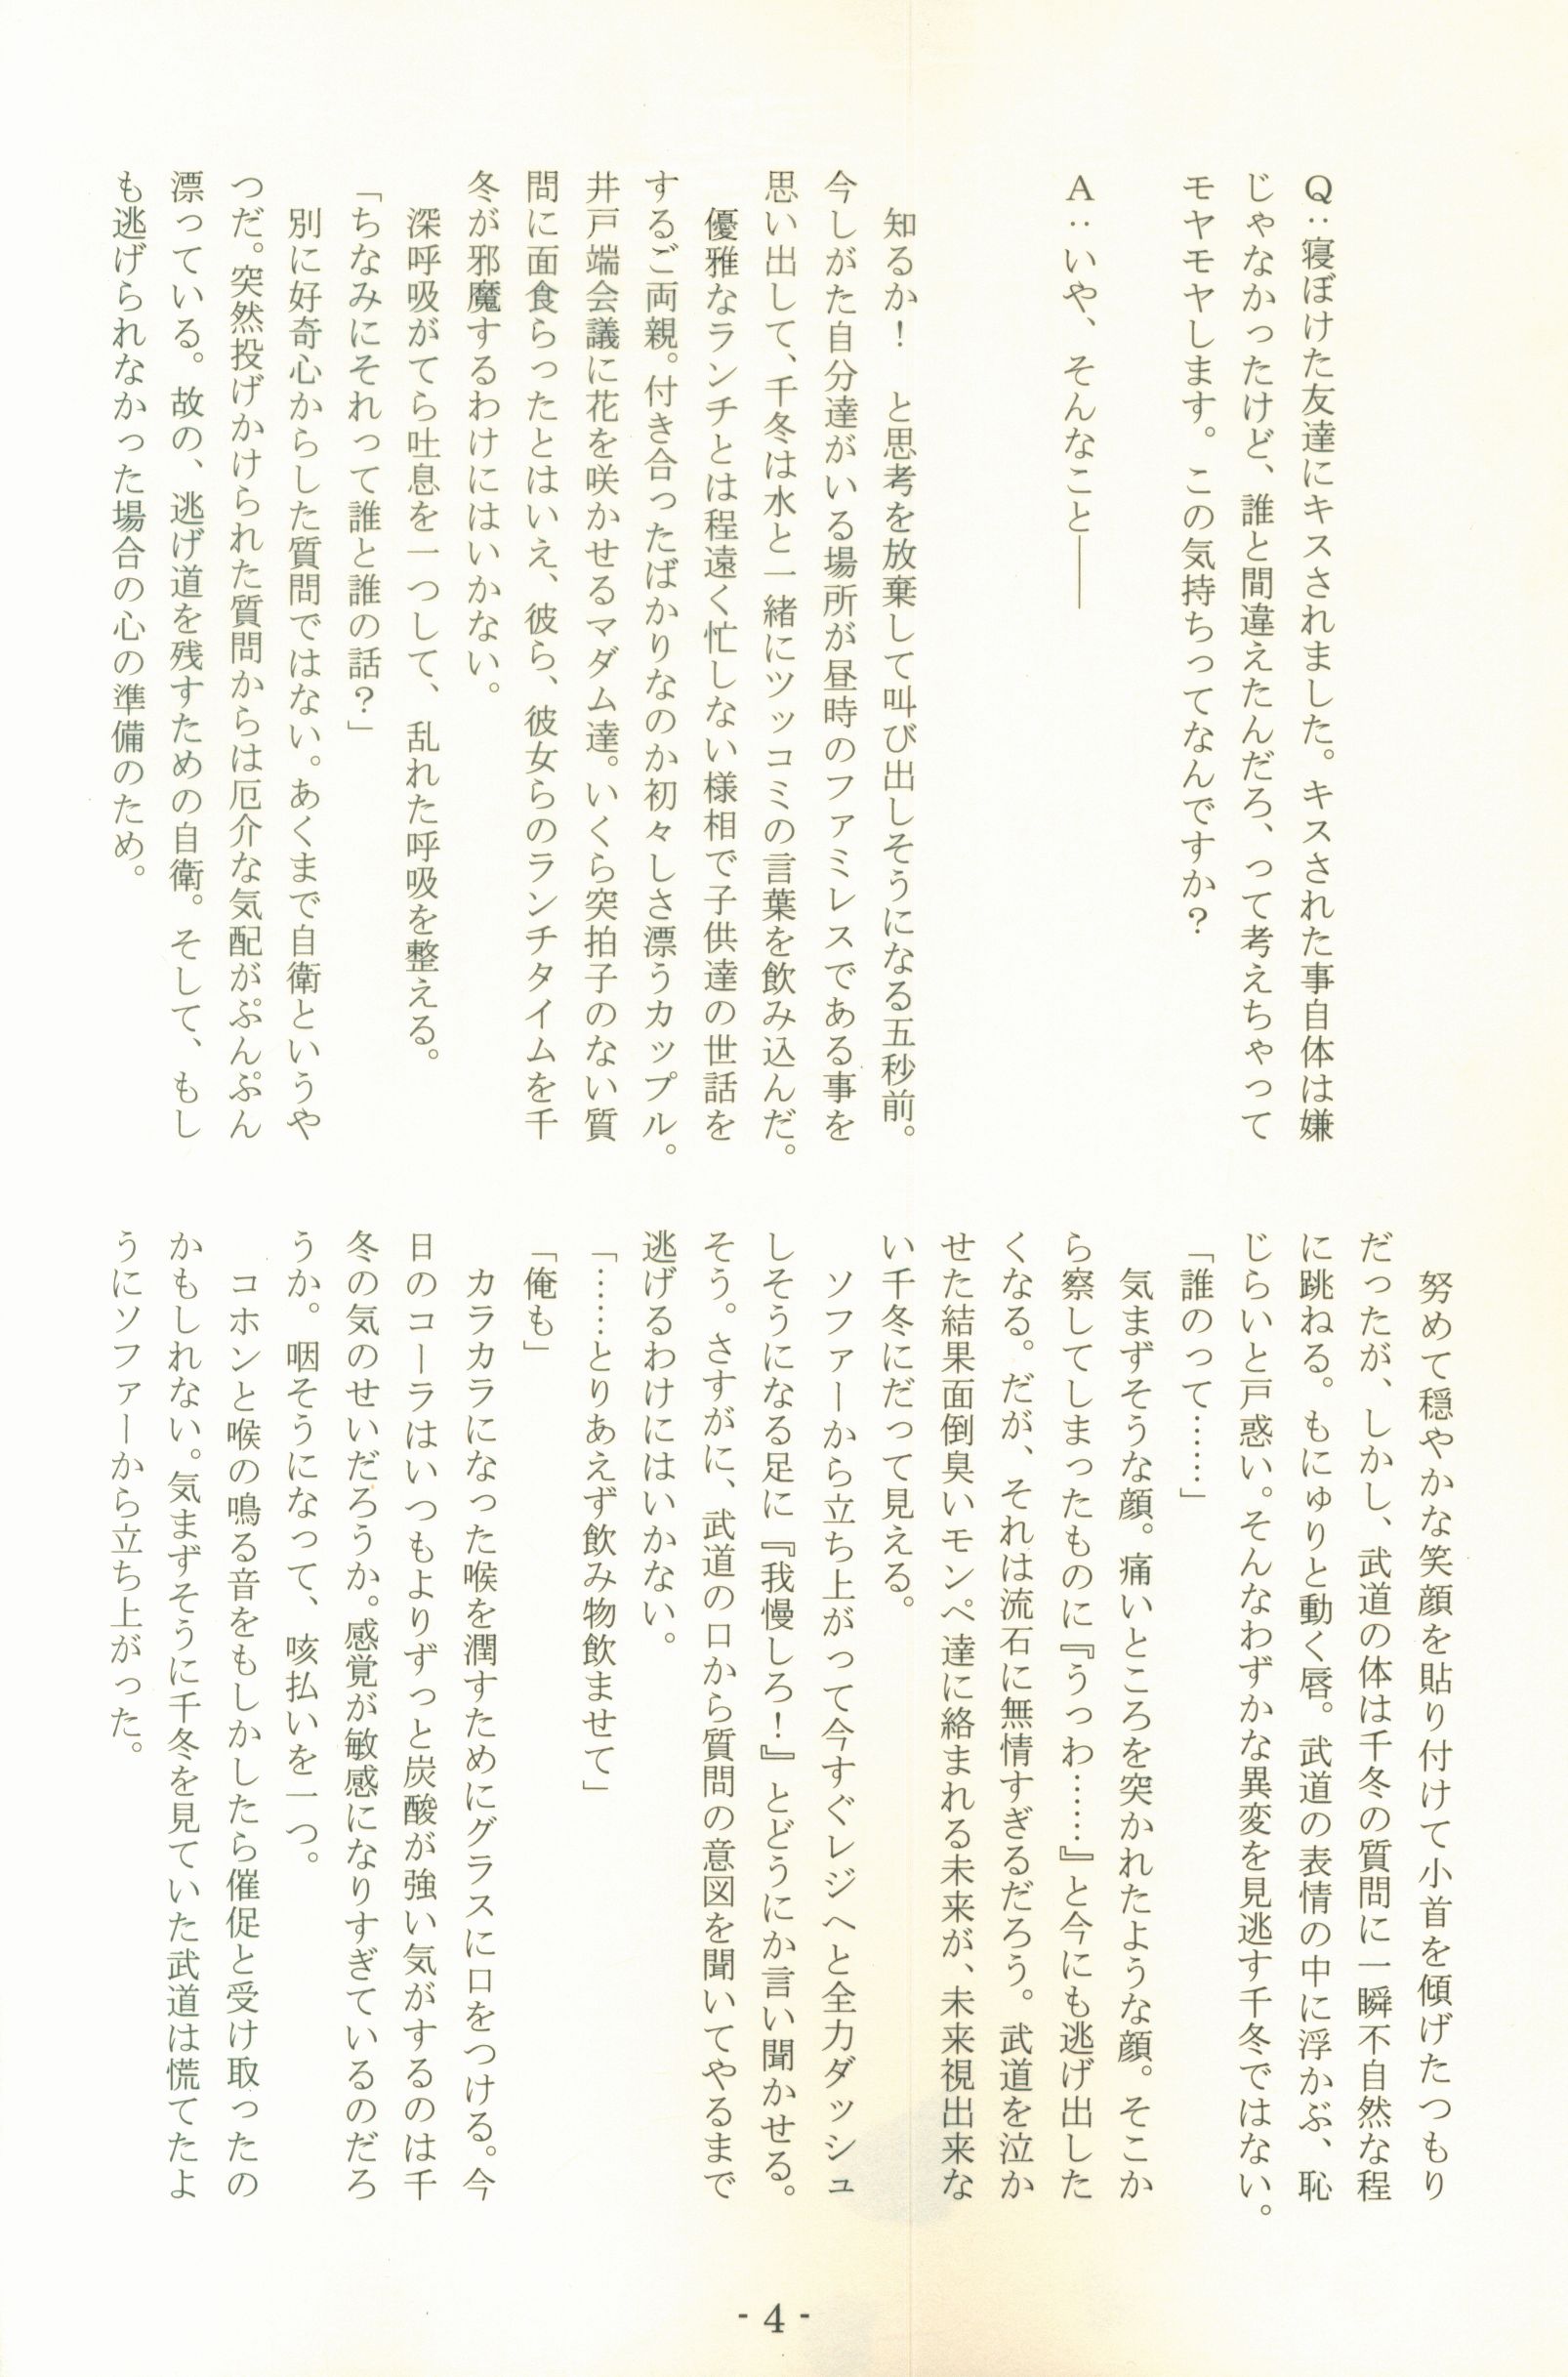 Q：寝ぼけた友達にキスされました。キスされた事自体は嫌
じゃなかったけど、誰と間違えたんだろ、って考えちゃって
モヤモヤします。この気持ちってなんですか？
A：いや、そんなこと――
知るか！　と思考を放棄して叫び出しそうになる五秒前。
今しがた自分達がいる場所が昼時のファミレスである事を
思い出して、千冬は水と一緒にツッコミの言葉を飲み込んだ。
優雅なランチとは程遠く忙しない様相で子供達の世話を
するご両親。付き合ったばかりなのか初々しさ漂うカップル。
井戸端会議に花を咲かせるマダム達。いくら突拍子のない質
問に面食らったとはいえ、彼ら、彼女らのランチタイムを千
冬が邪魔するわけにはいかない。
深呼吸がてら吐息を一つして、乱れた呼吸を整える。
「ちなみにそれって誰と誰の話？」
別に好奇心からした質問ではない。あくまで自衛というや
つだ。突然投げかけられた質問からは厄介な気配がぷんぷん
漂っている。故の、逃げ道を残すための自衛。そして、もし
も逃げられなかった場合の心の準備のため。
努めて穏やかな笑顔を貼り付けて小首を傾げたつもり
だったが、しかし、武道の体は千冬の質問に一瞬不自然な程
に跳ねる。もにゅりと動く唇。武道の表情の中に浮かぶ、恥
じらいと戸惑い。そんなわずかな異変を見逃す千冬ではない。
「誰のって……」
気まずそうな顔。痛いところを突かれたような顔。そこか
ら察してしまったものに『うっわ……』と今にも逃げ出した
くなる。だが、それは流石に無情すぎるだろう。武道を泣か
せた結果面倒臭いモンペ達に絡まれる未来が、未来視出来な
い千冬にだって見える。
ソファーから立ち上がって今すぐレジへと全力ダッシュ
しそうになる足に『我慢しろ！』とどうにか言い聞かせる。
そう。さすがに、武道の口から質問の意図を聞いてやるまで
逃げるわけにはいかない。
「……とりあえず飲み物飲ませて」
「俺も」
カラカラになった喉を潤すためにグラスに口をつける。今
日のコーラはいつもよりずっと炭酸が強い気がするのは千
冬の気のせいだろうか。感覚が敏感になりすぎているのだろ
うか。咽そうになって、咳払いを一つ。
コホンと喉の鳴る音をもしかしたら催促と受け取ったの
かもしれない。気まずそうに千冬を見ていた武道は慌てたよ
うにソファーから立ち上がった。
- 4 -